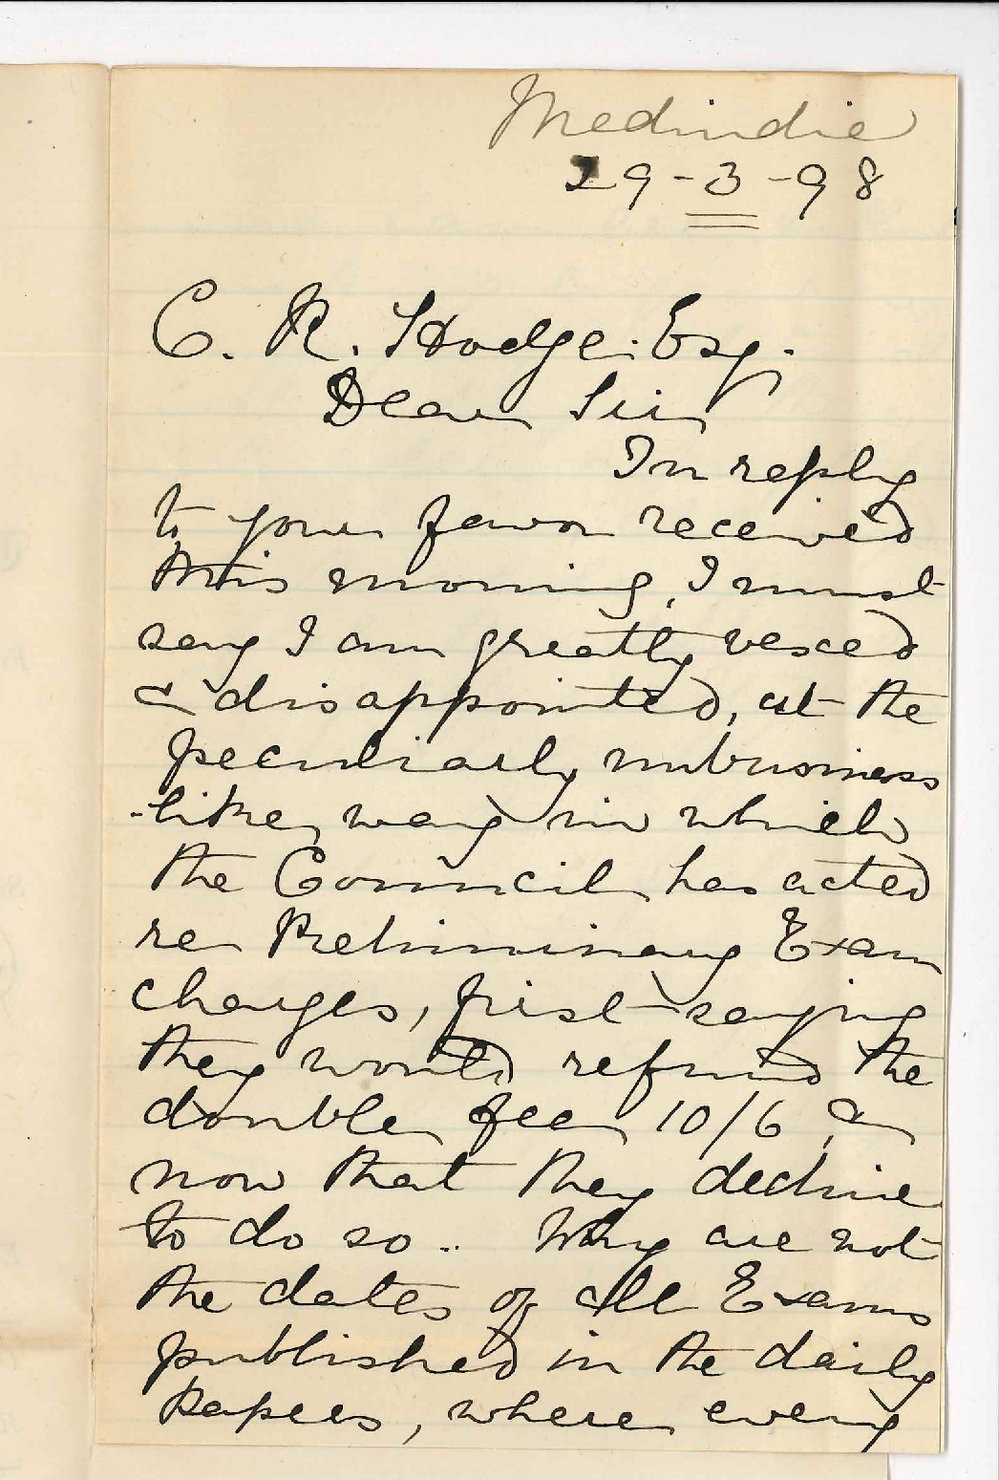 Medindie
29-3-98
C. R. Hodge. Esq.
Dear Sir
In reply
to your favor received
this morning, I must
say I am greatly vexed
& disappointed, at the
peculiarly unbusiness
-like way in which
the Council has acted
re Preliminary Exam
charges, first saying
they would refund the
double fee 10/6, &
now that they decline
to do so.. Why are not
the dates of all Exams
published in the daily
papers, where every